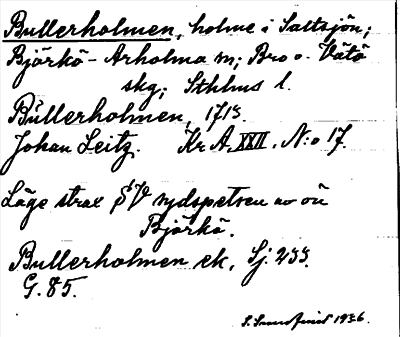 Bullerholmen, holme i Saltsjön;
Björkö-Arholma m; Bro o. Vätö
skg; Sthlms l.
Bullerholmen, 1715.
Johan Leitz. Kr A XXII. N:o 17.
Läge strax SV sydspetsen av ön
Björkö.
Bullerholmen ek. Sj. 255.
G. 85.
1936.